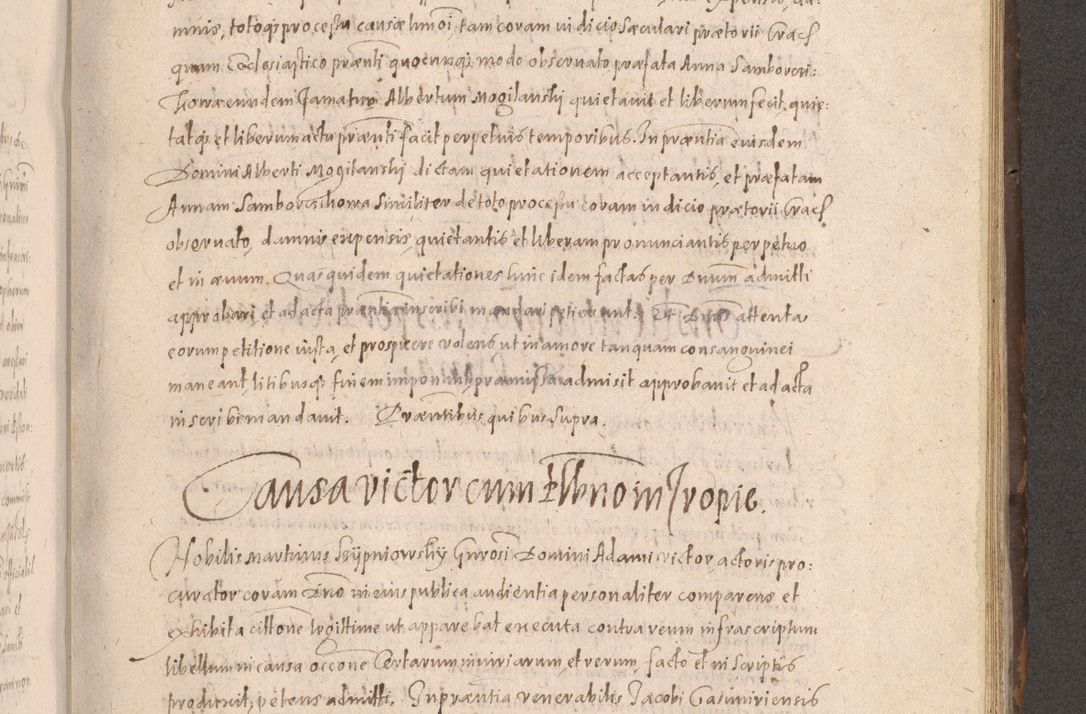 mnis, totoqȝ processu causæ hmoi tam coram iudicio sæculari prætorii Crac
quam Ecclesiastico prænti quocunqȝ modo observato præfata Anna Samborczi:
kowa eundem famatum Albertum Mogilanski quietavit et liberum fecit, quie:
tatqȝ et liberum actu prænti facit perpetuis temporibus. In præntia eiusdem
Domini Alberti Mogilanski dictam quietationem acceptantis, et præfatam
Annam Samborczikowa similiter de toto processu coram iudicio prætorii Crac
observato, damnis expensis, quietantis et liberam pronunciantis perpetuo
et in ævum. Quas quidem quietationes hinc idem factas per Dnum admitti
approbari, et ad acta præntia inscribi mandari petierunt. Et Dnus attenta
eorum petitione iusta, et prospicere volens ut in amore tanquam consanguinei
maneant litibusqȝ finem imponant, præmissa admisit approbavit et ad acta
inscribi mandavit. Præntibus quibus supra.
Causa victor cum Elbno in Tropie.
Nobilis Martinus Szÿpniowskÿ Gnrosi Domini Adami victor actoris pro:
curator coram Dno in eius publica audientia personaliter comparens et
exhibita cittone legittime ut apparebat executa contra reum infrascriptum
libellum in causa occone Certarum iniuriarum, et rerum, facto et in scriptis
produxit, petens admitti. In præntia venerabilis Jacobi Casimiriensis